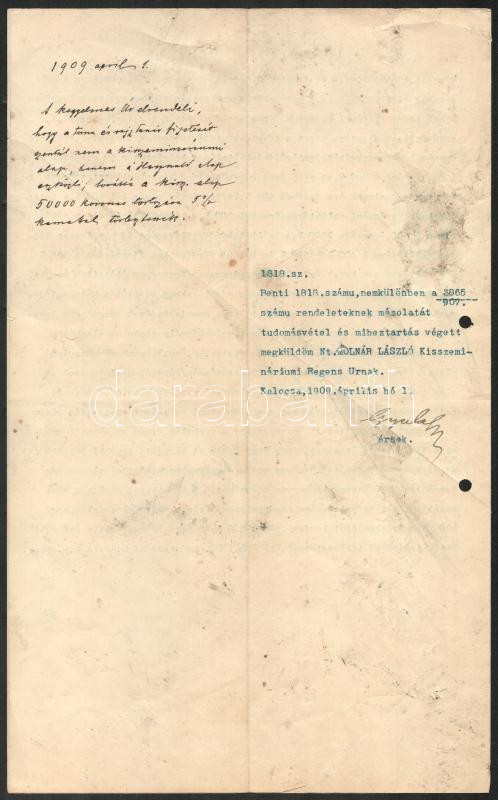 1909 april 1.
A kegyelmes Úr elrendeli,
hogy a torna és rajz tanár fizetését
ezentúl nem a kisszeminariumi
alap, hanem a Haynald alap
eszközli; továbbá a kisz. alap
50000 koronás tartozása 5%
kamatal törlesztessék.
1818.sz.
Fenti 1818.számu,nemkülönben a 3865
907.
számu rendeleteknek másolatát
tudomásvétel és miheztartás végett
megküldöm Nt.MOLNÁR LÁSZLÓ Kisszemi-
náriumi Regens Urnak.
Kalocsa,1909.április hó 1.
érsek.
darabanth